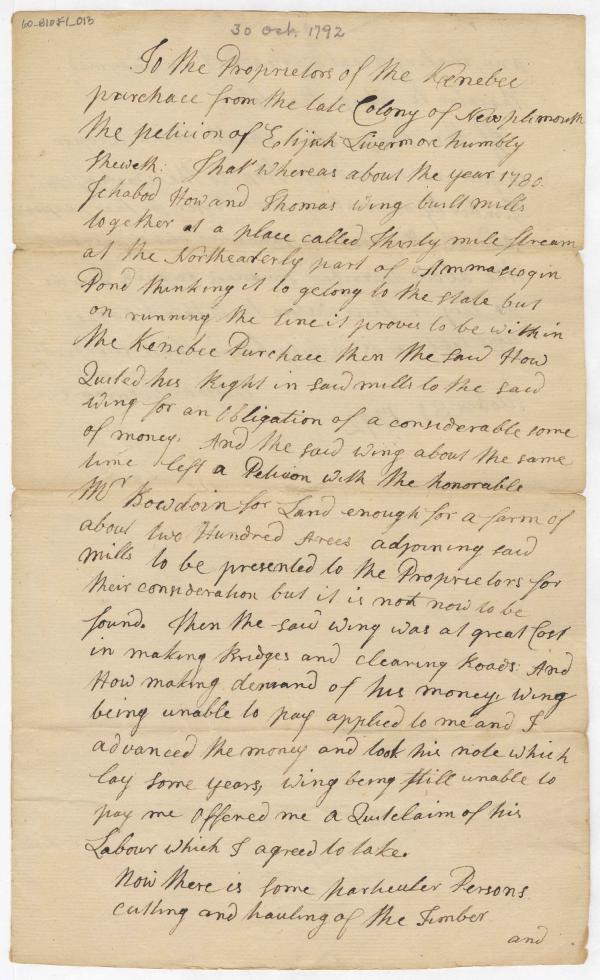 60-81081_013
30 Oct. 1792
To the Proprietors of the Kenebec
purchace from the late Colony of New plimouth
the peticion of Elijah Livermore humbly
Sheweth: That whereas about the year 1780.
Ichabod How and Thomas wing built mills
together at a place called Thirty mile stream
at the Northearerly part of Ammascogin
Pond thinking it to gelong to the state but
on running the line it proves to be within
the Kenebec Purchace then the said How
Quited his Right in said mills to the said
wing for an Obligation of a considerable some
of money. And the said wing about the same
time left a Peticion with the honorable
Mr Bowdoin for Land enough for a farm of
about two Hundred Acres adjoining said
mills to be presented to the Proprietors for
their consideration but it is not now to be
found. then the said wing was at great Cost
in making Bridges and clearing Roads: And
How making demand of his money, wing
being unable to pay applied to me and I
advanced the money and took his note which
lay some years, wing being still unable to
pay me Offered me a Quitclaim of his
Labour which I agreed to take.
Now there is some particuler Persons
cutting and hauling of the Timber
and